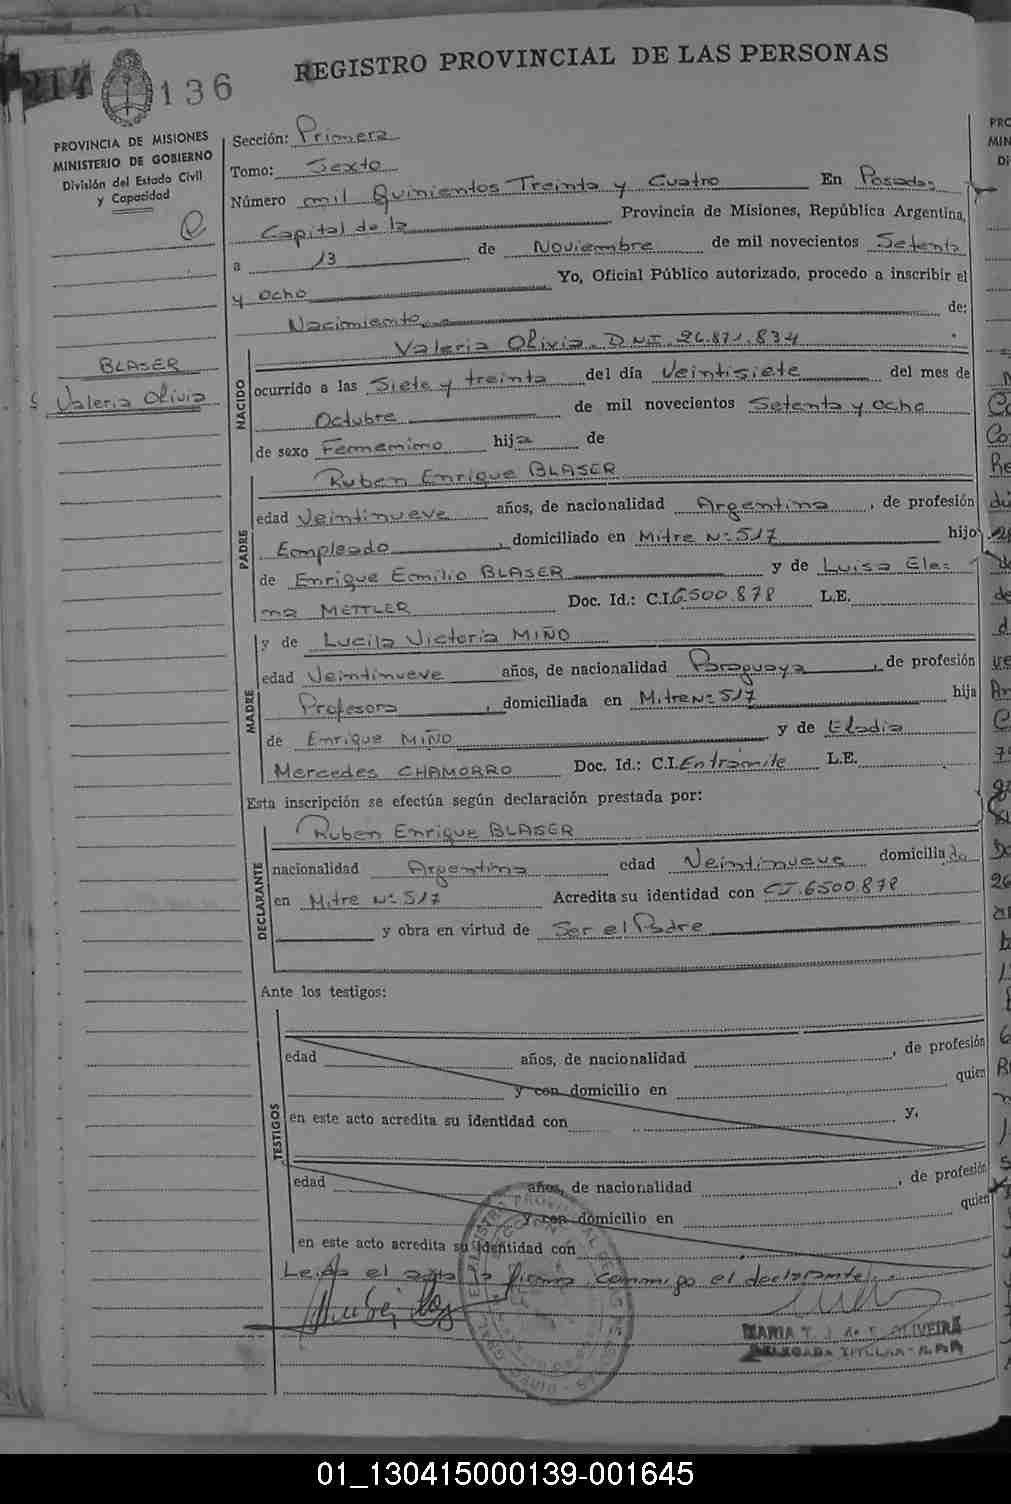 REGISTRO PROVINCIAL DE LAS PERSONAS
214
136
PROVINCIA DE MISIONES
MINISTERIO DE GOBIERNO
División del Estado Civil
y Capacidad
BLASER
Valeria Olivia
Sección: Primera
Tomo: Sexto
Número mil Quinientos Treinta y Cuatro En Posadas,
Capital de la Provincia de Misiones, República Argentina,
a 13 de Noviembre de mil novecientos Setenta
y ocho Yo, Oficial Público autorizado, procedo a inscribir el
Nacimiento de:
NACIDO
Valeria Olivia. D.N.I. 26.871.834
ocurrido a las Siete y treinta del día Veintisiete del mes de
Octubre de mil novecientos Setenta y ocho
de sexo Femenino hija de
PADRE
Ruben Enrique BLASER
edad Veintinueve años, de nacionalidad Argentina, de profesión
Empleado, domiciliado en Mitre Nº 517 hijo
de Enrique Emilio BLASER y de Luisa Ele=
na METTLER Doc. Id.: C.I. 6500.878 L.E.
MADRE
y de Lucila Victoria MIÑO
edad Veintinueve años, de nacionalidad Paraguaya, de profesión
Profesora, domiciliada en Mitre Nº 517 hija
de Enrique MIÑO y de Eladia
Mercedes CHAMORRO Doc. Id.: C.I. En trámite L.E.
Esta inscripción se efectúa según declaración prestada por:
DECLARANTE
Ruben Enrique BLASER
nacionalidad Argentina edad Veintinueve domiciliado
en Mitre Nº 517 Acredita su identidad con CI. 6500.878
y obra en virtud de Ser el Padre
Ante los testigos:
TESTIGOS
edad años, de nacionalidad, de profesión
y con domicilio en quien
en este acto acredita su identidad con y,
edad años, de nacionalidad, de profesión
y con domicilio en quien
en este acto acredita su identidad con
Leida el acta la firma conmigo el declarante.
MARIA T. J. de T. OLIVEIRA
DELEGADA TITULAR
01_130415000139-001645